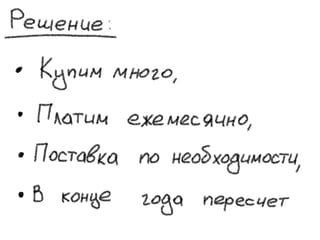 Решение:
• Купим много,
• Платим ежемесячно,
• Поставка по необходимости,
• В конце года пересчет